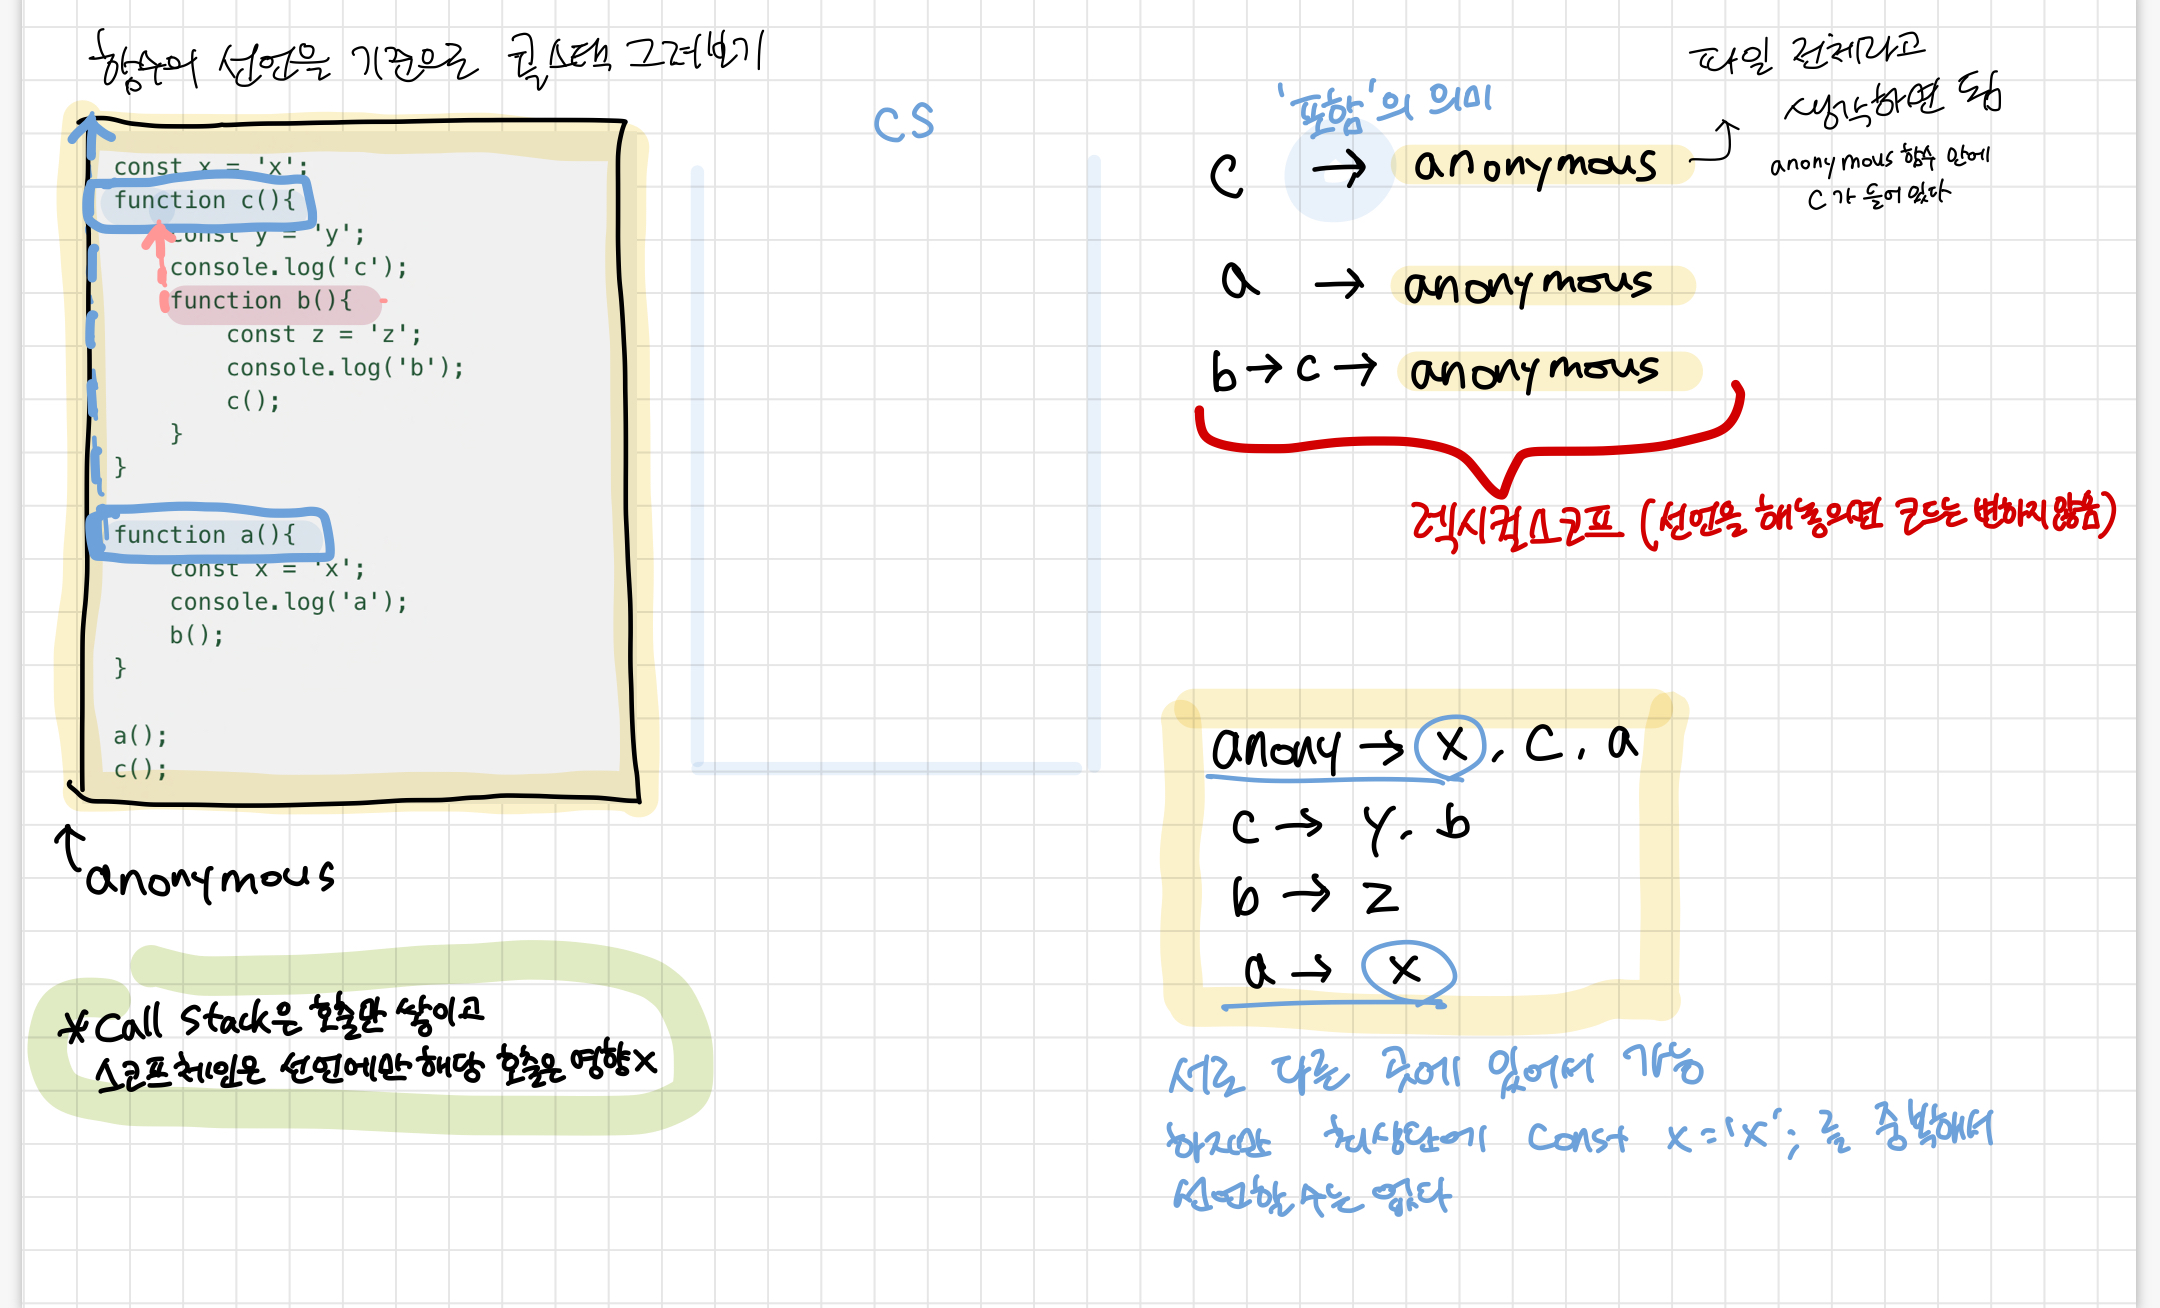 함수의 선언을 기준으로 콜스택 그려보기
const x = 'x';
function c(){
const y = 'y';
console.log('c');
function b(){
const z = 'z';
console.log('b');
c();
}
}
function a(){
const x = 'x';
console.log('a');
b();
}
a();
c();
anonymous
*Call Stack은 호출만 쌓이고
스코프체인은 선언에만 해당 호출은 영향X
CS
'포함'의 의미
c → anonymous
파일 전체라고
생각하면 됨
anonymous 함수 안에
c가 들어있다
a → anonymous
b → c → anonymous
렉시컬스코프 (선언을 해놓으면 코드는 변하지않음)
anony → x, c, a
c → y, b
b → z
a → x
서로 다른 곳에 있어서 가능
하지만 최상단에 const x='x'; 를 중복해서
선언할 수는 없다